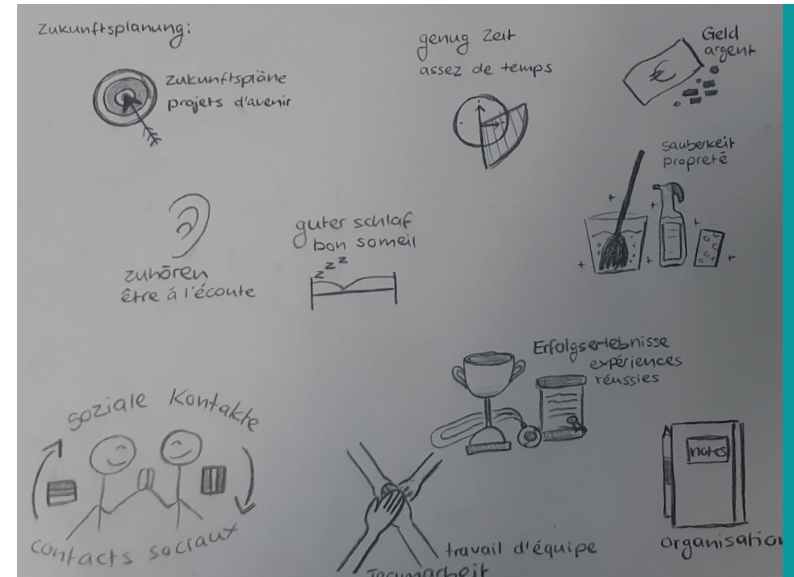 Zukunftsplanung:
zukunftspläne
projets d'avenir
genug Zeit
assez de temps
Geld
argent
€
sauberkeit
propreté
zuhören
être á l'écoute
guter schlaf
bon someil
z z z
Erfolgserlebnisse
expériences
réussies
soziale Kontakte
contacts sociaux
travail d'équipe
Teamarbeit
notes
organisation